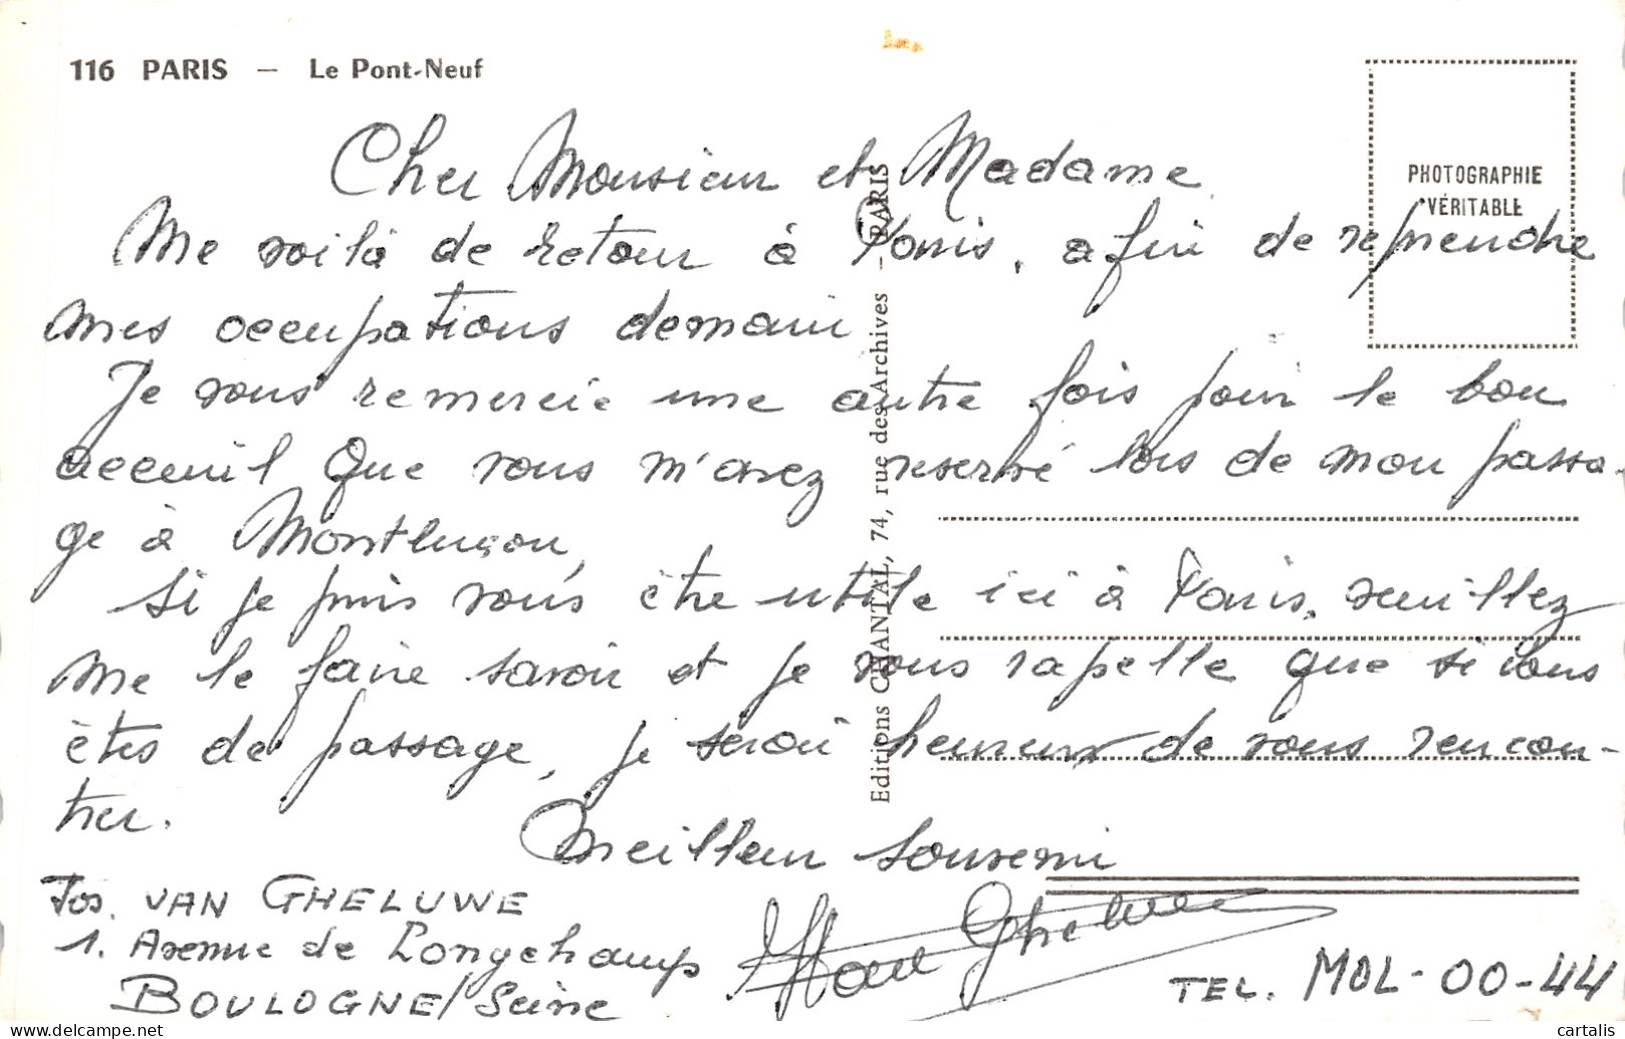 116 PARIS – Le Pont-Neuf
PHOTOGRAPHIE
VÉRITABLE
Editions CHANTAL, 74, rue des Archives - PARIS
Cher Monsieur et Madame
Me voilà de retour à Paris, afin de reprendre
mes occupations demain
Je vous remercie une autre fois pour le bon
acceuil que vous m'avez reservé lors de mon passa-
ge à Montluçon,
Si je puis vous être utile ici à Paris, veuillez
me le faire savoir et je vous rapelle que si vous
êtes de passage, je serai heureux de vous rencon-
trer.
Meilleur souvenir
Jos. VAN GHELUWE
1. Avenue de Longchamp
BOULOGNE/Seine
TEL. MOL-00-44
cartalis